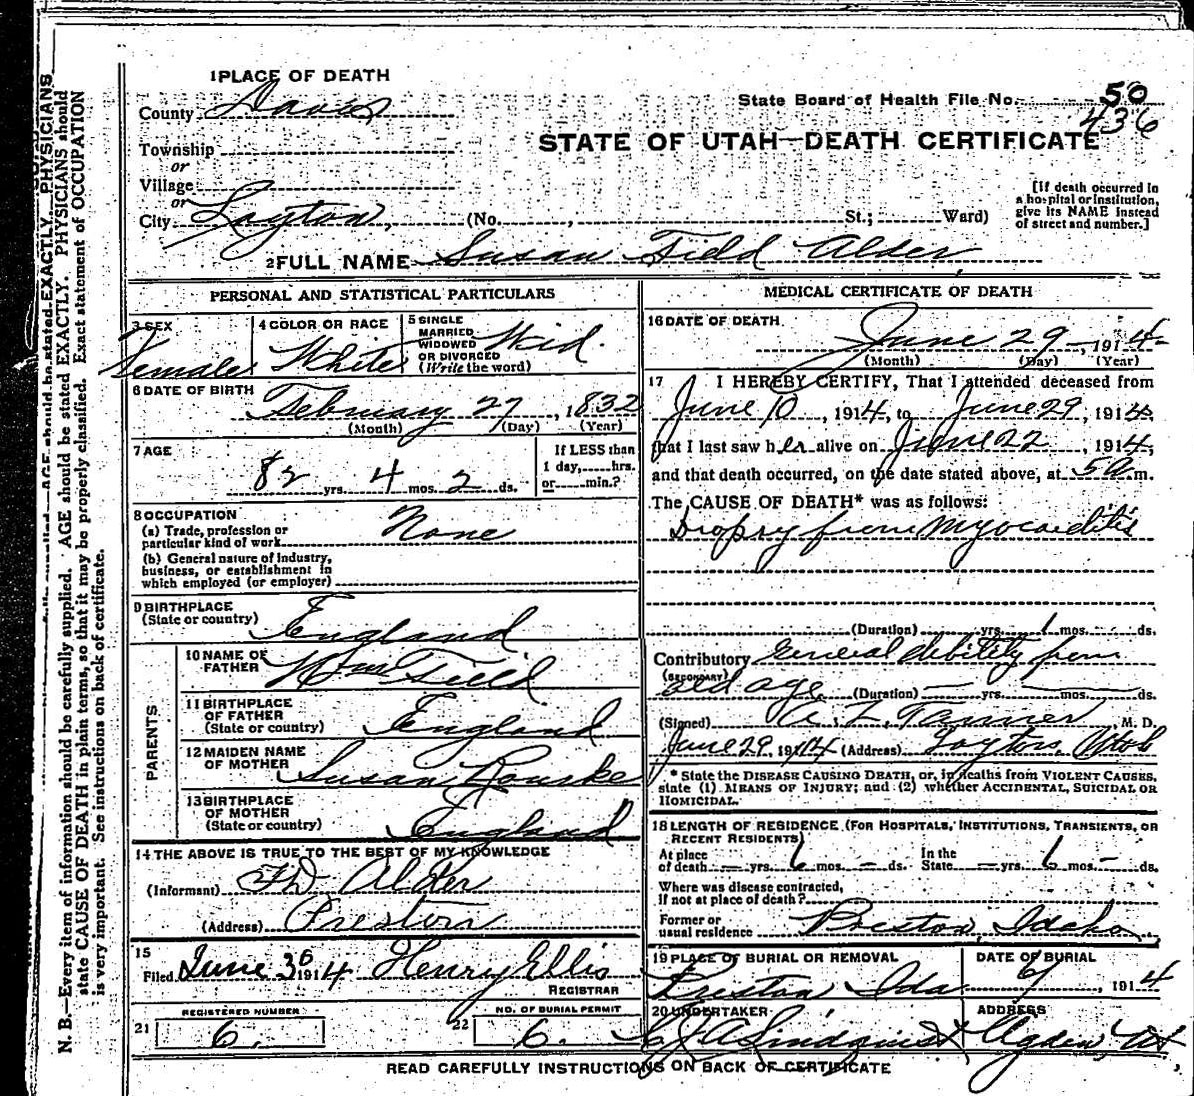 1 PLACE OF DEATH
County Davis
Township
or
Village
or
City Layton, (No. , St.; Ward)
State Board of Health File No. 50
436
STATE OF UTAH—DEATH CERTIFICATE
[If death occurred in
a hospital or institution,
give its NAME instead
of street and number.]
2 FULL NAME Susan Field Alder
PERSONAL AND STATISTICAL PARTICULARS
3 SEX
Female
4 COLOR OR RACE
White
5 SINGLE
MARRIED
WIDOWED
OR DIVORCED
(Write the word)
Wid.
6 DATE OF BIRTH
February 27, 1832
(Month) (Day) (Year)
7 AGE
82 yrs. 4 mos. 2 ds.
If LESS than
1 day, hrs.
or min.?
8 OCCUPATION
(a) Trade, profession or
particular kind of work None
(b) General nature of industry,
business, or establishment in
which employed (or employer)
9 BIRTHPLACE
(State or country) England
PARENTS
10 NAME OF
FATHER Wm Field
11 BIRTHPLACE
OF FATHER
(State or country) England
12 MAIDEN NAME
OF MOTHER Susan Rourke
13 BIRTHPLACE
OF MOTHER
(State or country) England
14 THE ABOVE IS TRUE TO THE BEST OF MY KNOWLEDGE
(Informant) Alder
(Address) Preston
15
Filed June 30 1914 Henry Ellis
REGISTRAR
21 REGISTERED NUMBER
6.
22 NO. OF BURIAL PERMIT
6.
MEDICAL CERTIFICATE OF DEATH
16 DATE OF DEATH
June 29, 1914
(Month) (Day) (Year)
17 I HEREBY CERTIFY, That I attended deceased from
June 10, 1914, to June 29, 1914,
that I last saw her alive on June 22, 1914,
and that death occurred, on the date stated above, at 5 a m.
The CAUSE OF DEATH* was as follows:
Dropsy from Myocarditis
(Duration) yrs. 1 mos. ds.
Contributory General debility from
(SECONDARY)
old age (Duration) yrs. mos. ds.
(Signed) A. Z. Tanner, M. D.
June 29, 1914 (Address) Layton Utah
* State the DISEASE CAUSING DEATH, or, in deaths from VIOLENT CAUSES,
state (1) MEANS OF INJURY; and (2) whether ACCIDENTAL, SUICIDAL OR
HOMICIDAL.
18 LENGTH OF RESIDENCE (FOR HOSPITALS, INSTITUTIONS, TRANSIENTS, OR
RECENT RESIDENTS)
At place In the
of death — yrs. 6 mos. — ds. State — yrs. 6 mos. — ds.
Where was disease contracted,
if not at place of death?
Former or
usual residence Preston, Idaho
19 PLACE OF BURIAL OR REMOVAL
Preston Ida
DATE OF BURIAL
, 1914
20 UNDERTAKER
Lindquist
ADDRESS
Ogden, Ut
READ CAREFULLY INSTRUCTIONS ON BACK OF CERTIFICATE
N. B.—Every item of information should be carefully supplied. AGE should be stated EXACTLY. PHYSICIANS should
state CAUSE OF DEATH in plain terms, so that it may be properly classified. Exact statement of OCCUPATION
is very important. See instructions on back of certificate.